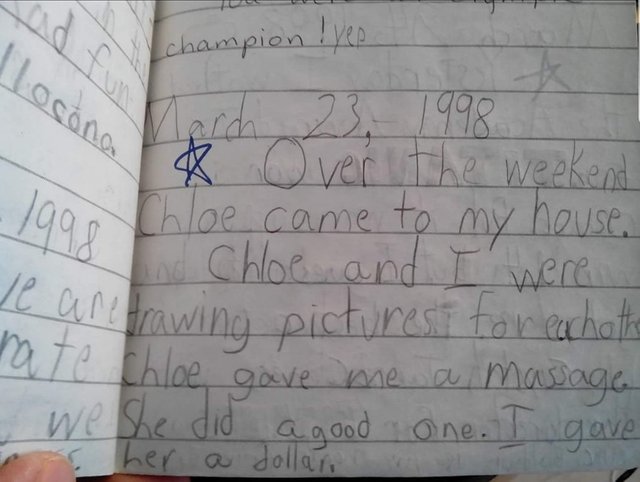 champion! yep
March 23, 1998
Over the weekend
Chloe came to my house.
Chloe and I were
drawing pictures for eachoth
Chloe gave me a massage
She did a good one. I gave
her a dollar.
ad fun
1998
e are
rate
we